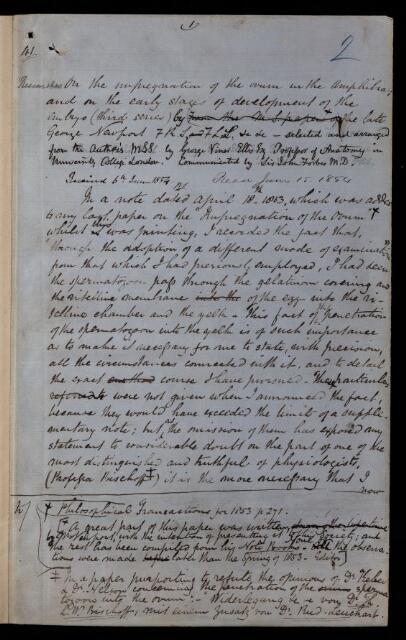 1
41.
2
Researches On the impregnation of the ovum in the Amphibia;
and on the early stages of development of the
embryo (third series) by the late
George Newport F.R.S., F.L.S. &c &c – selected and arranged
from the Author's MSS by George Viner Ellis Esq Professor of Anatomy in
University College London. Communicated by Sir John Forbes M.D.
Received 5th June 1854 Read June 15. 1854
In a note dated April 18th 1853, which was added
to my last paper on the "Impregnation of the Ovum" †
whilst this was printing, I recorded the fact that,
through the adoption of a different mode of examination
from that which I had previously employed, I had seen
the spermatozoa pass through the gelatinous covering and
the vitelline membrane into the of the egg into the vi-
telline chamber and the yelk – This fact of penetration
of the spermatozoon into the yelk is of such importance
as to make it necessary for me to state, with precision,
all the circumstances connected with it, and to detail
the exact course I have pursued. These particulars
were not given when I announced the fact,
because they would have exceeded the limit of a supple-
mentary note; but the omission of them has exposed my
statement to considerable doubt on the part of one of the
most distinguished and truthful of physiologists,
(Professor Bischoff ‡) it is the more necessary that I
now
† Philosophical Transactions, for 1853 p. 271.
A great part of this paper was written
by Mr Newport, with the intention of presenting it to the Royal Society; and
the rest has been compiled from his Note Books – all the observa-
tions were made later than the Spring of 1853. Editor
‡ In a paper purporting to refute the opinions of Dr Keber
& Dr Nelson concerning the penetration of the sperma-
tozoon into the ovum: – Widerlegung &c von Dr
L. W. Bischoff, mit einem Zusatz von Dr. Rud. Leuckart.